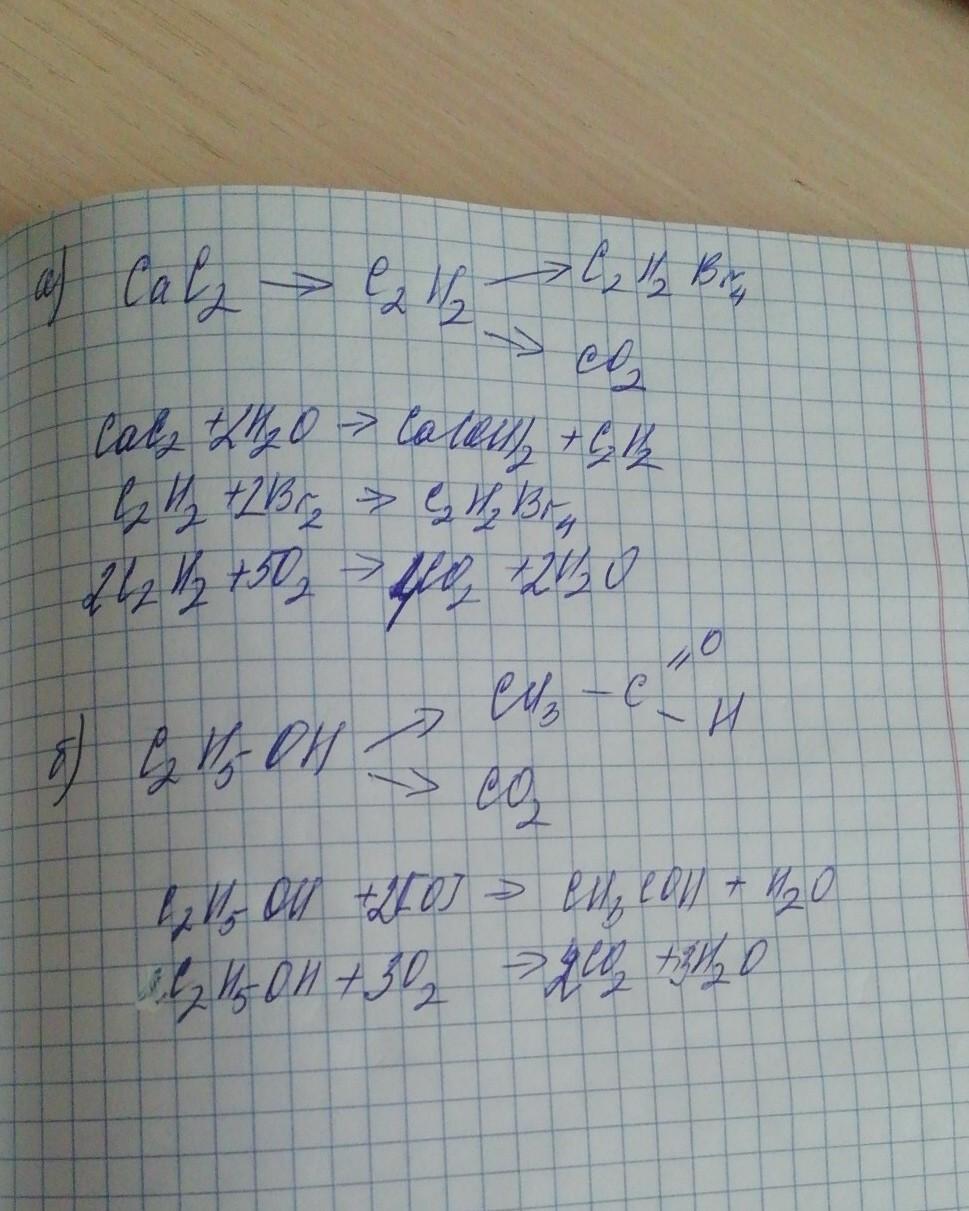 а) CaC₂ → C₂H₂ → C₂H₂Br₄
→ CO₂
CaC₂ + 2H₂O → Ca(OH)₂ + C₂H₂
C₂H₂ + 2Br₂ → C₂H₂Br₄
2C₂H₂ + 5O₂ → 4CO₂ + 2H₂O
б) C₂H₅OH → CH₃ – C =O – H
→ CO₂
C₂H₅OH + 2[O] → CH₃COH + H₂O
C₂H₅OH + 3O₂ → 2CO₂ + 3H₂O